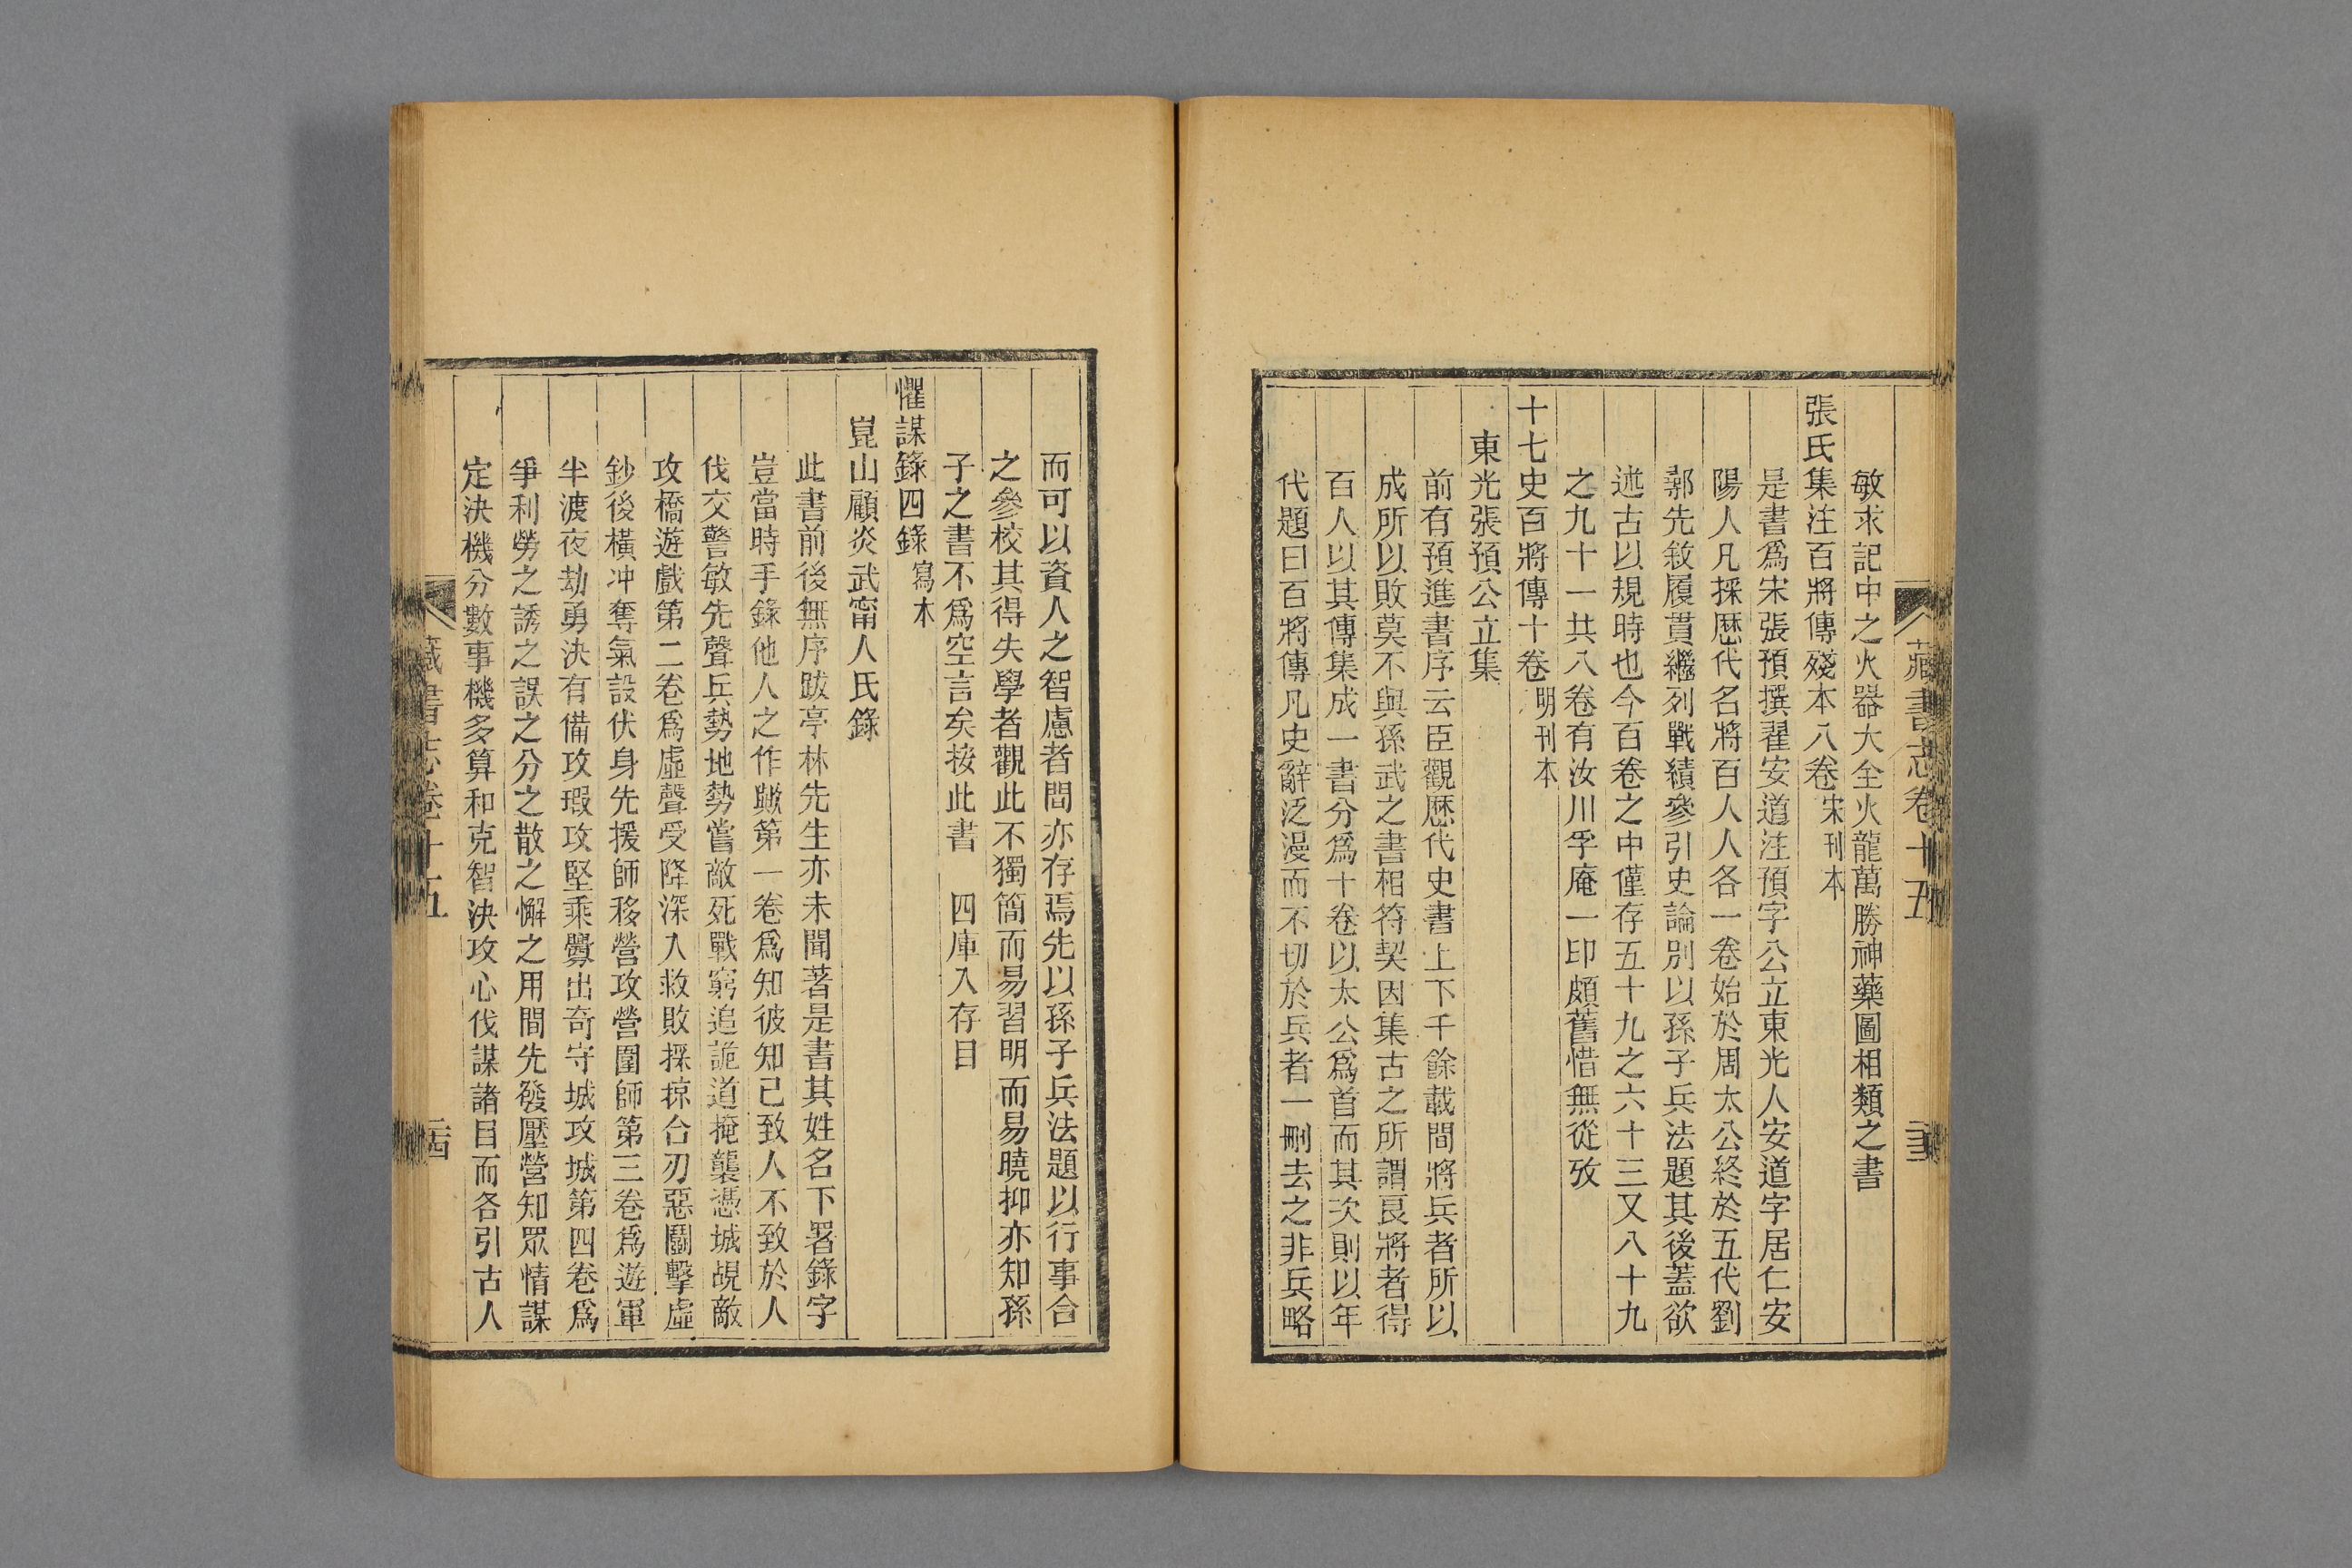 藏書志卷十五
敏求記中之火器大全火龍萬勝神藥圖相類之書
張氏集注百將傳殘本八卷宋刊本
是書爲宋張預撰翟安道注預字公立東光人安道字居仁安
陽人凡採歷代名將百人人各一卷始於周太公終於五代劉
鄩先敘履貫繼列戰績參引史論別以孫子兵法題其後蓋欲
述古以規時也今百卷之中僅存五十九之六十三又八十九
之九十一共八卷有汝川孚庵一印頗舊惜無從攷
十七史百將傳十卷明刊本
東光張預公立集
前有預進書序云臣觀歷代史書上下千餘載間將兵者所以
成所以敗莫不與孫武之書相符契因集古之所謂良將者得
百人以其傳集成一書分爲十卷以太公爲首而其次則以年
代題曰百將傳凡史辭泛漫而不切於兵者一刪去之非兵略
而可以資人之智慮者間亦存焉先以孫子兵法題以行事合
之參校其得失學者觀此不獨簡而易習明而易曉抑亦知孫
子之書不爲空言矣按此書　四庫入存目
懼謀錄四錄寫本
崑山顧炎武甯人氏錄
此書前後無序跋亭林先生亦未聞著是書其姓名下署錄字
豈當時手錄他人之作歟第一卷爲知彼知己致人不致於人
伐交警敏先聲兵勢地勢嘗敵死戰窮追詭道掩襲憑城覘敵
攻橋遊戲第二卷爲虛聲受降深入救敗採掠台刃惡鬭擊虛
鈔後橫冲奪氣設伏身先援師移營攻營圍師第三卷爲遊軍
半渡夜劫勇決有備攻瑕攻堅乘釁出奇守城攻城第四卷爲
爭利勞之誘之誤之分之散之懈之用間先發壓營知眾情謀
定決機分數事機多算和克智決攻心伐謀諸目而各引古人
藏書志卷十五